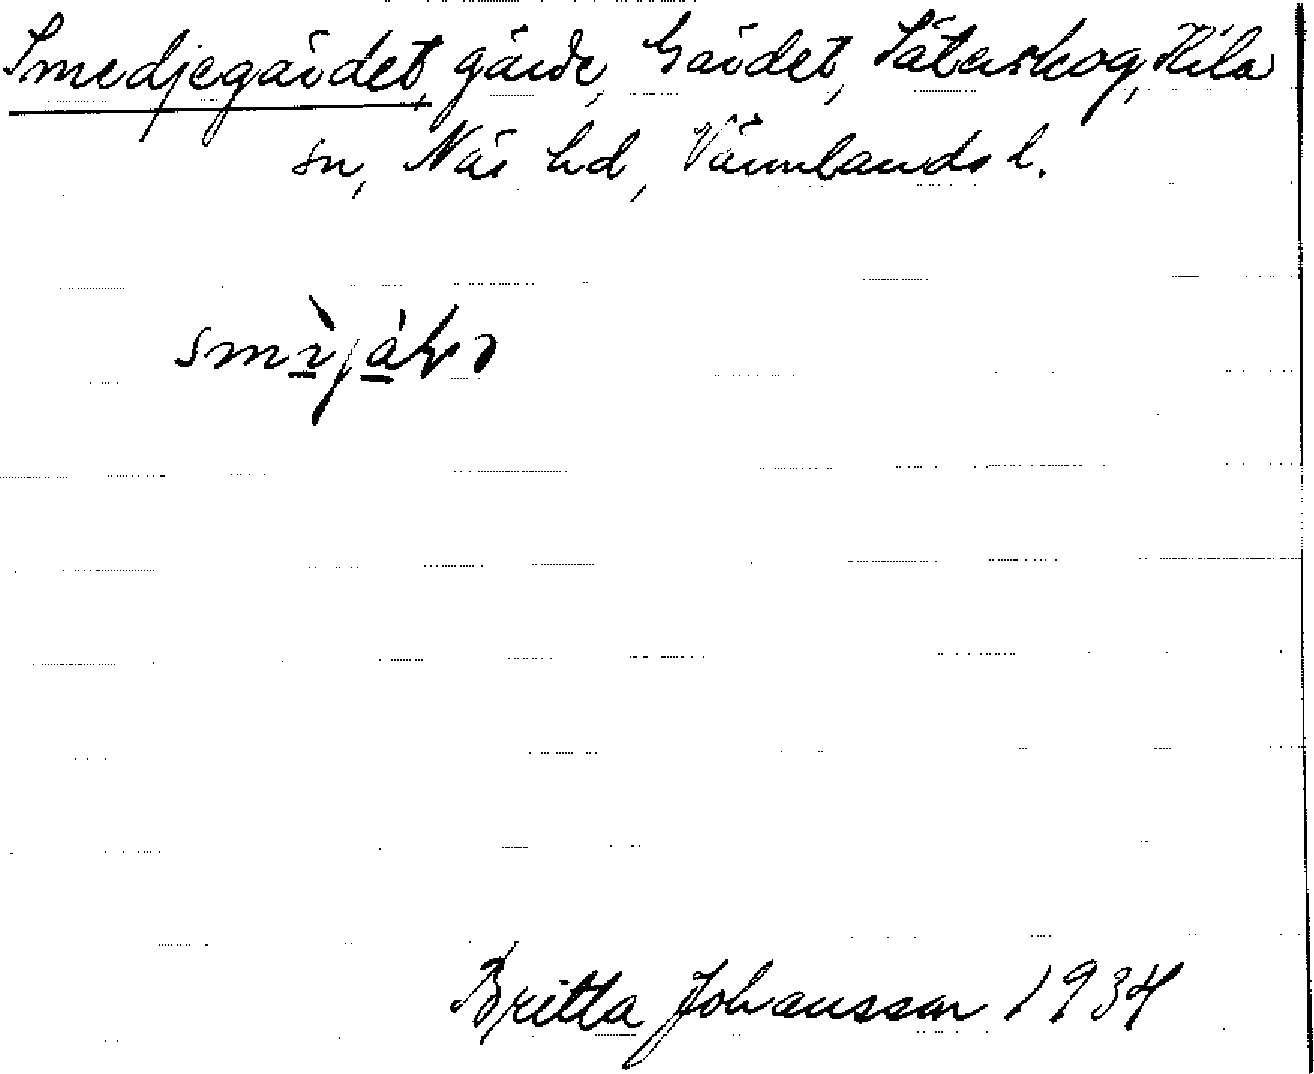 Smedjegärdet, gärde, Gärdet, Säterskog, Kila
sn, Näs hd, Värmlands l.
Britta Johansson 1934